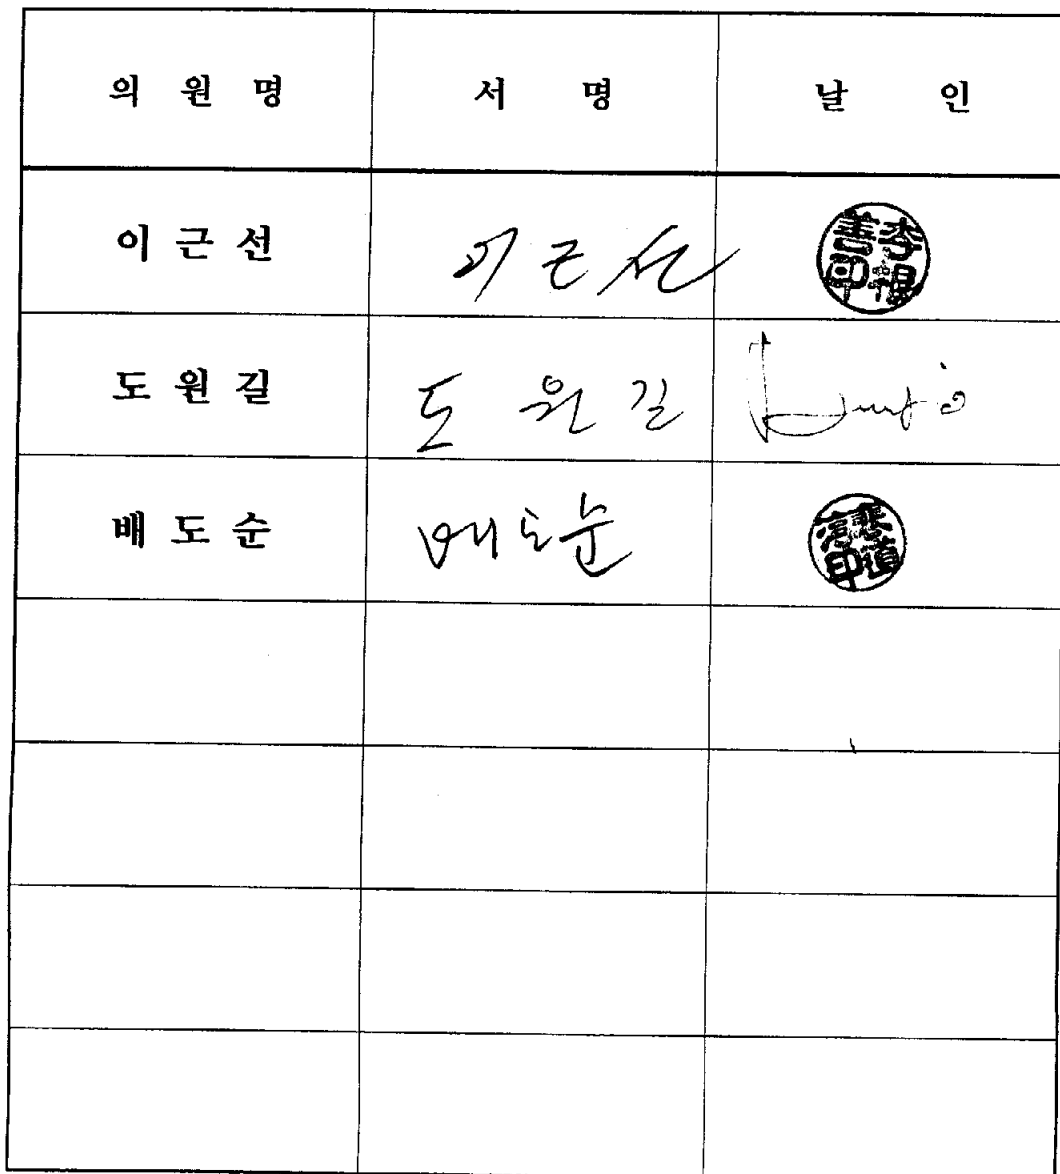 의 원 명 서 명 날 인
이 근 선 이근선 李根善印
도 원 길 도 원 길
배 도 순 배도순